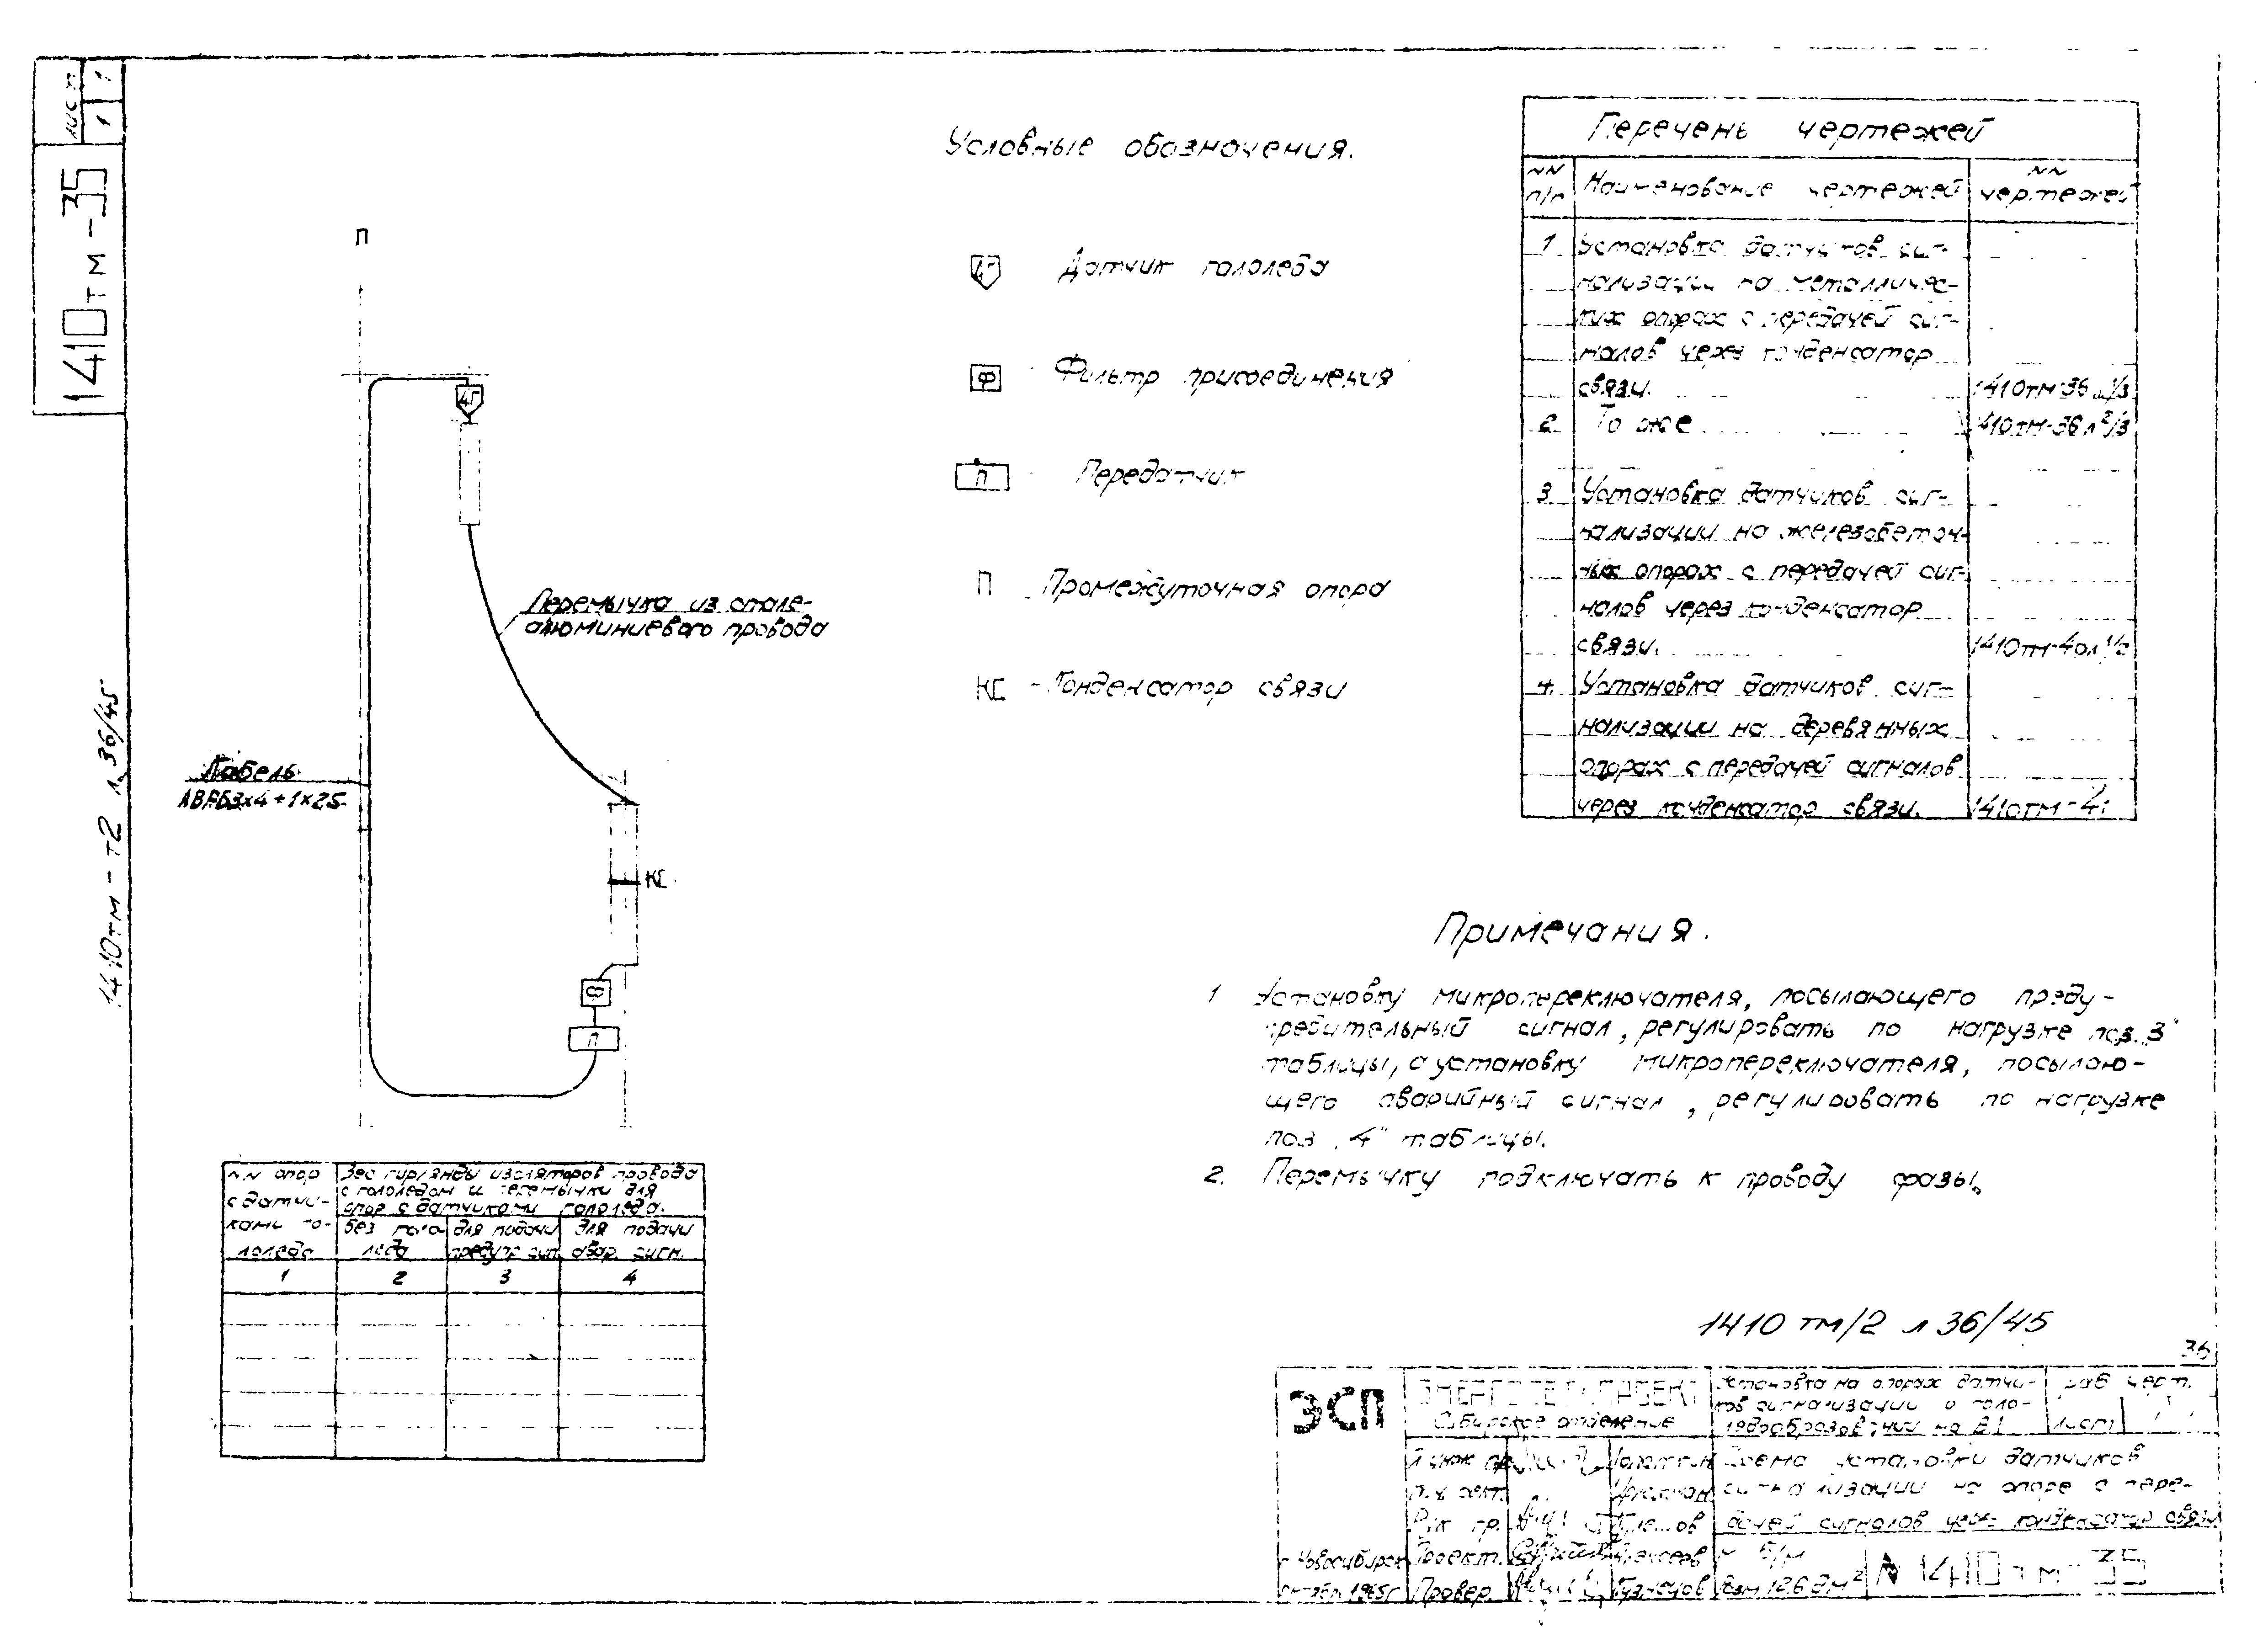 лист
1 1
1410тм-35
1410тм-т2 л.36/45
П
ДГ
Перемычка из стале-
алюминиевого провода
Кабель
3х4+1х25
КС
Ф
П
NN опор
с датчи-
ками го-
лоледа
Вес гирлянды изоляторов провода
с гололедом и перемычки для
опор с датчиками гололеда.
без голо-
леда
для подачи
предупр сиг.
для подачи
авар. сигн.
1 2 3 4
Условные обозначения.
ДГ Датчик гололеда
Ф - Фильтр присоединения
П - Передатчик
П - Промежуточная опора
КС - Конденсатор связи
Перечень чертежей
NN
п/п
Наименование чертежей
NN
чертежей
1 Установка датчиков сиг-
нализации на металличес-
ких опорах с передачей сиг-
налов через конденсатор
связи. 1410тм-36 л1/3
2 То же 1410тм-36 л2/3
3. Установка датчиков сиг-
нализации на железобетон-
ных опорах с передачей сиг-
налов через конденсатор
связи. 1410тм-40л1/2
4. Установка датчиков сиг-
нализации на деревянных
опорах с передачей сигналов
через конденсатор связи. 1410тм-41
Примечания.
1 Установку микропереключателя, посылающего преду-
предительный сигнал, регулировать по нагрузке поз. „3"
таблицы, а установку микропереключателя, посылаю-
щего аварийный сигнал, регулировать по нагрузке
поз „4" таблицы.
2. Перемычку подключать к проводу фазы.
1410 тм/2 л 36/45
36
ЭСП
ЭНЕРГОСЕТЬПРОЕКТ
Сибирское отделение
Установка на опорах датчи-
ков сигнализации о голо-
ледообразовании на ВЛ
раб черт.
лист 1
Гл инж пр.
Рук гр.
Проект.
Провер. Кузнецов
Схема установки датчиков
сигнализации на опоре с пере-
дачей сигналов через конденсатор связи
г Новосибирск
октябрь 1965г
М б/м
разм 12.6 дм²
N 1410тм-35